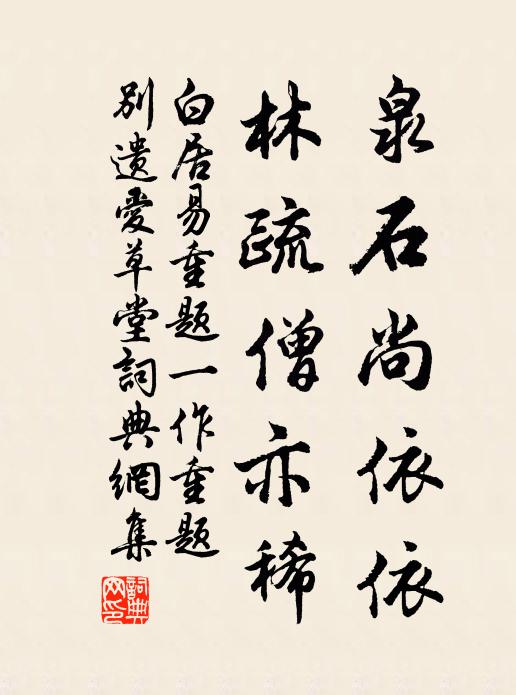 泉石尚依依
林疏僧亦稀
白居易重題一作重題
別遺愛草堂詞典網集
詞典網印